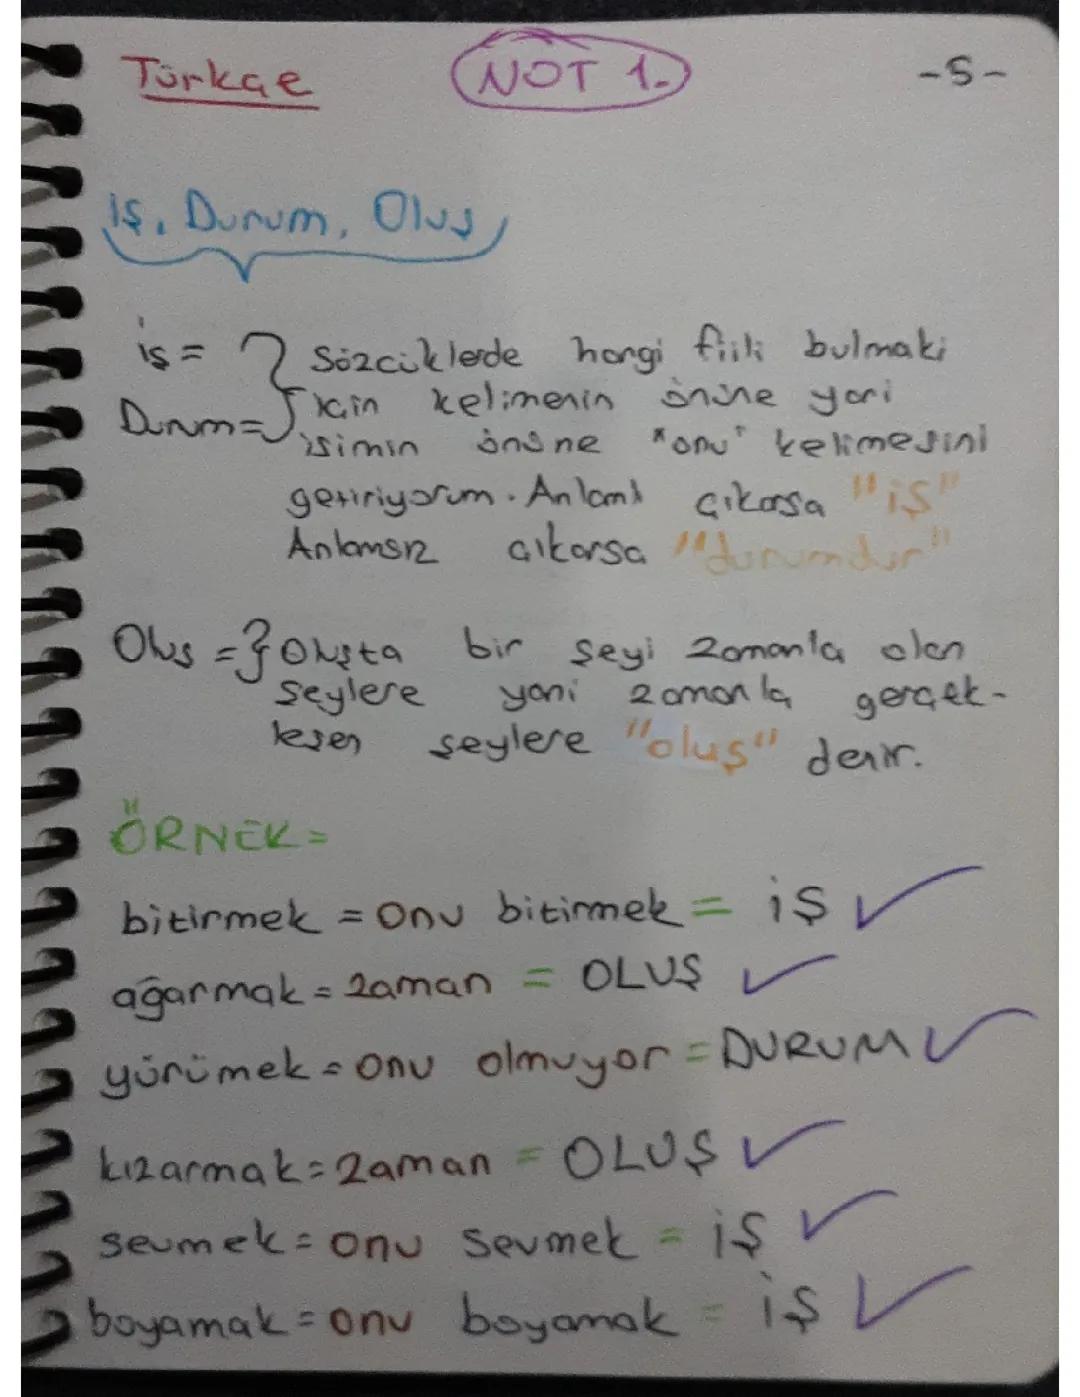 Türkçe NOT 1. -5-
İş, Durum, Oluş
iş = } Sözcüklerde hangi fiili bulmaki
Durum= için kelimenin önüne yani
isimin önüne "onu" kelimesini
getiriyorum. Anlamlı çıkarsa "iş"
Anlamsız çıkarsa "durumdur"
Oluş = } Oluşta bir şeyi zamanla olan
şeylere yani zamanla gerçek-
leşen şeylere "oluş" denir.
ÖRNEK=
bitirmek = onu bitirmek = iŞ ✓
ağarmak = zaman = OLUŞ ✓
yürümek = onu olmuyor = DURUM ✓
kızarmak = zaman = OLUŞ ✓
sevmek = onu sevmek = iŞ ✓
boyamak = onu boyamak = iŞ ✓